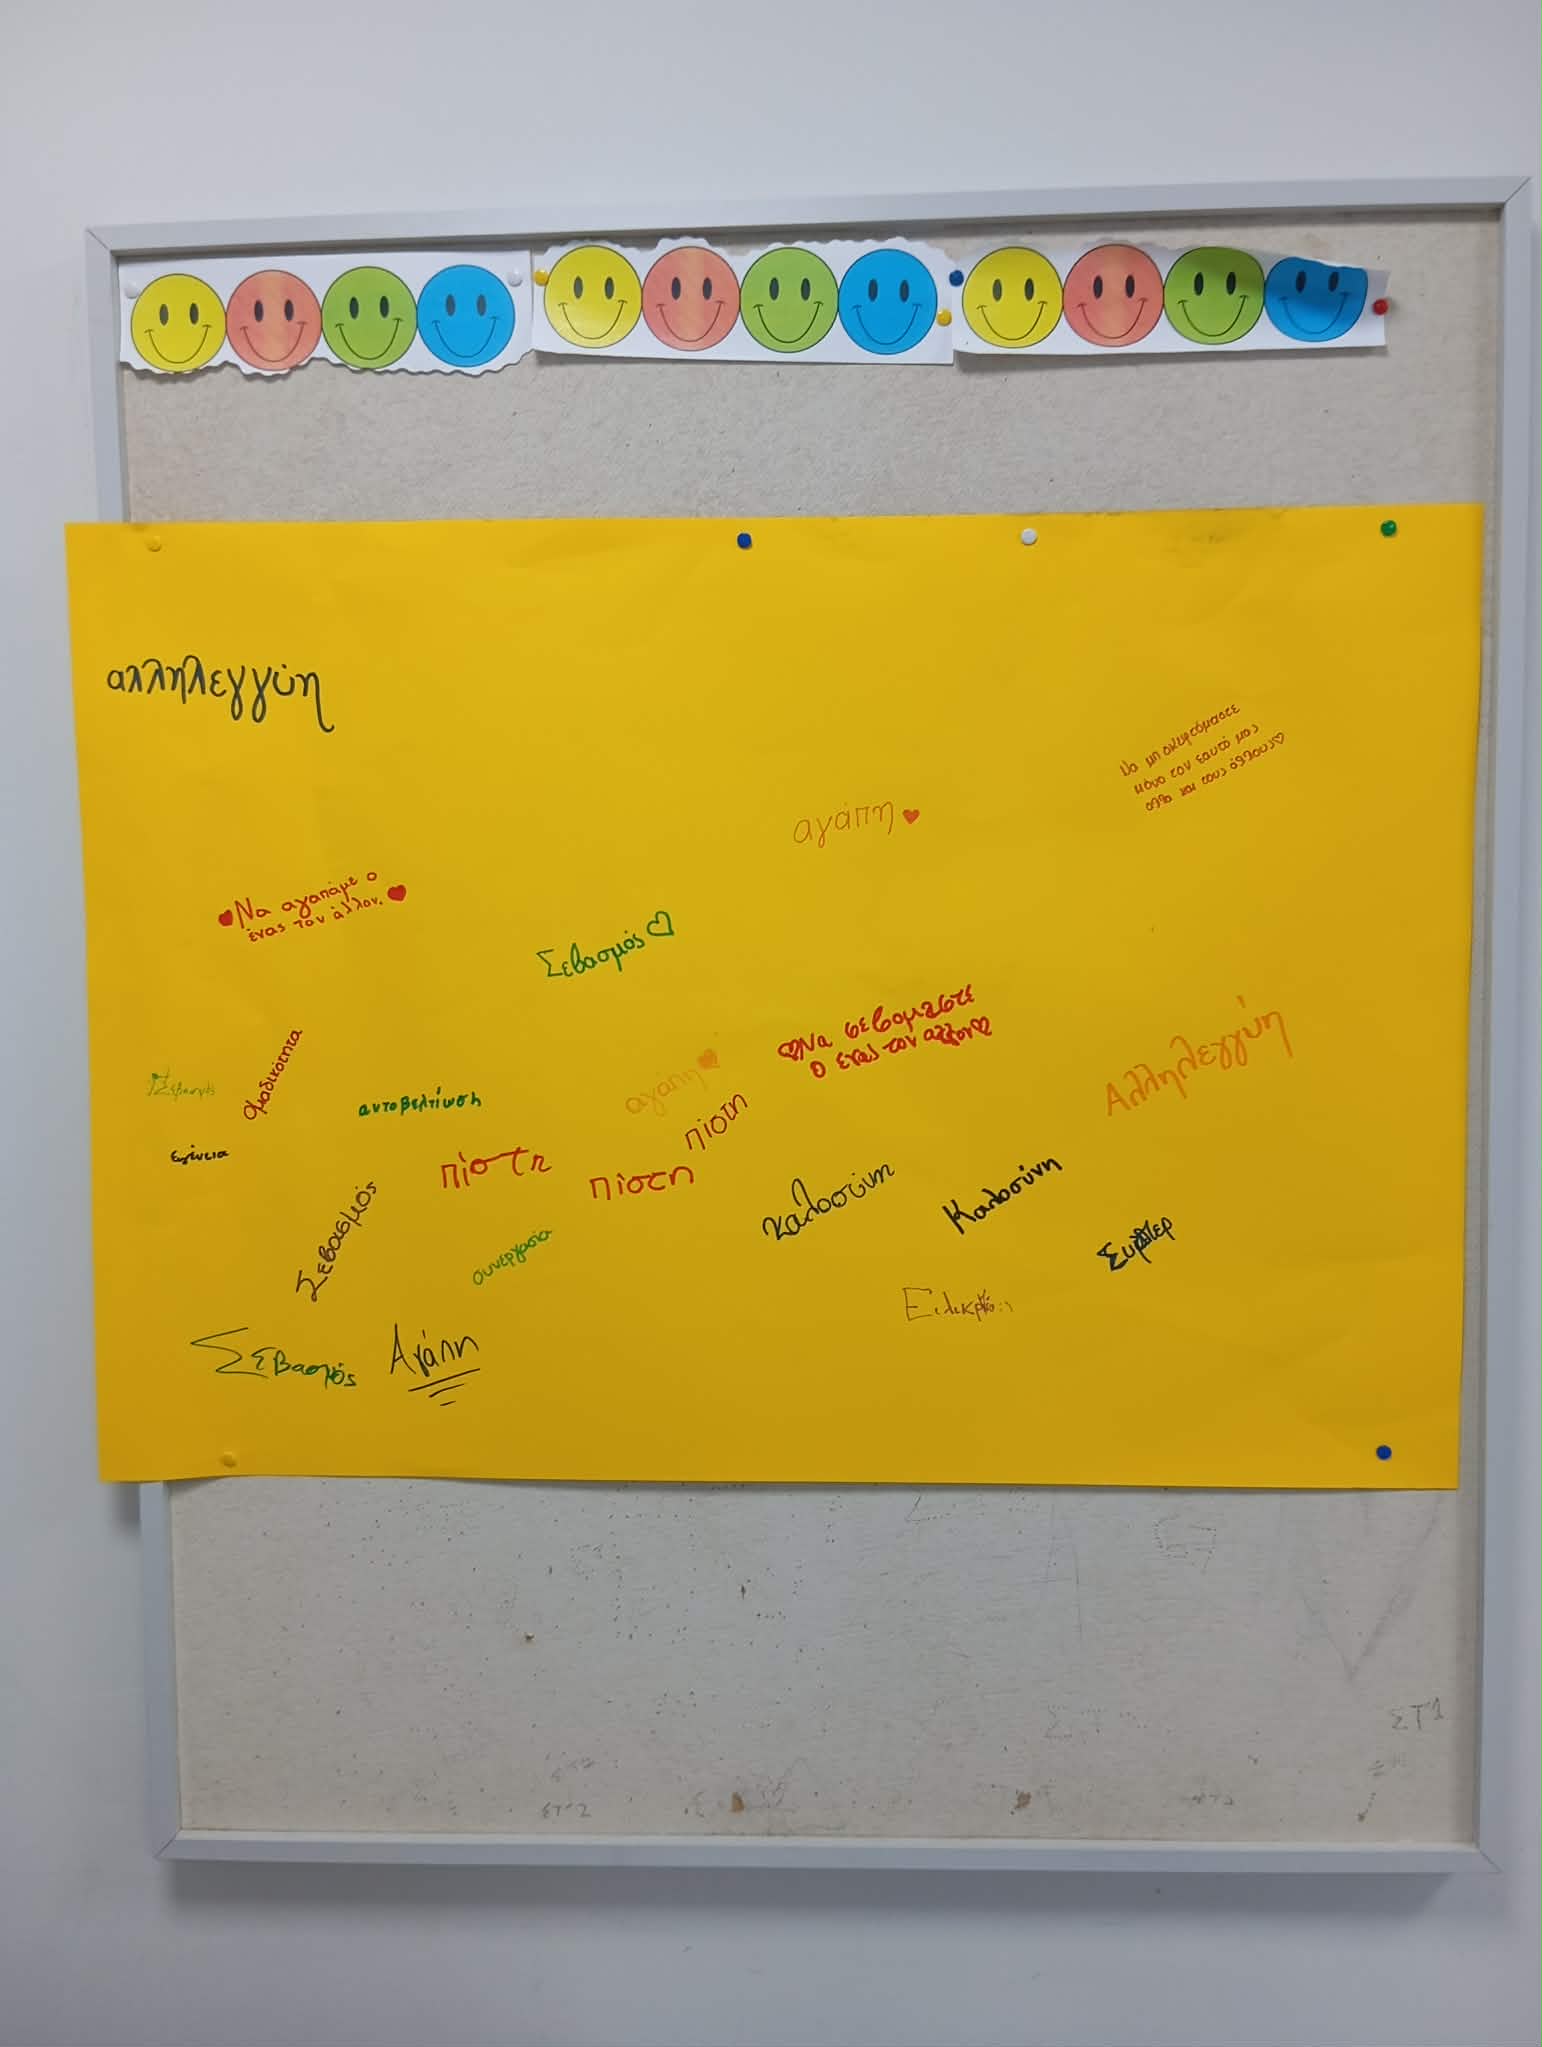 αλληλεγγύη
Να μη σκεφτόμαστε
μόνο τον εαυτό μας
αλλά και τους άλλους
αγάπη
Να αγαπάμε ο
ένας τον άλλον.
Σεβασμός
Να σεβομαστε
ο ενας τον αλλον
Αλληλεγγύη
Σεβασμός
Ομαδικότητα
αυτοβελτίωση
αγάπη
πίστη
ευγένεια
πίστη
πίστη
Σεβασμός
συνεργασία
καλοσύνη
Καλοσύνη
Σεβασμός
Αγάπη
ΣΤ1
ΣΤ'2